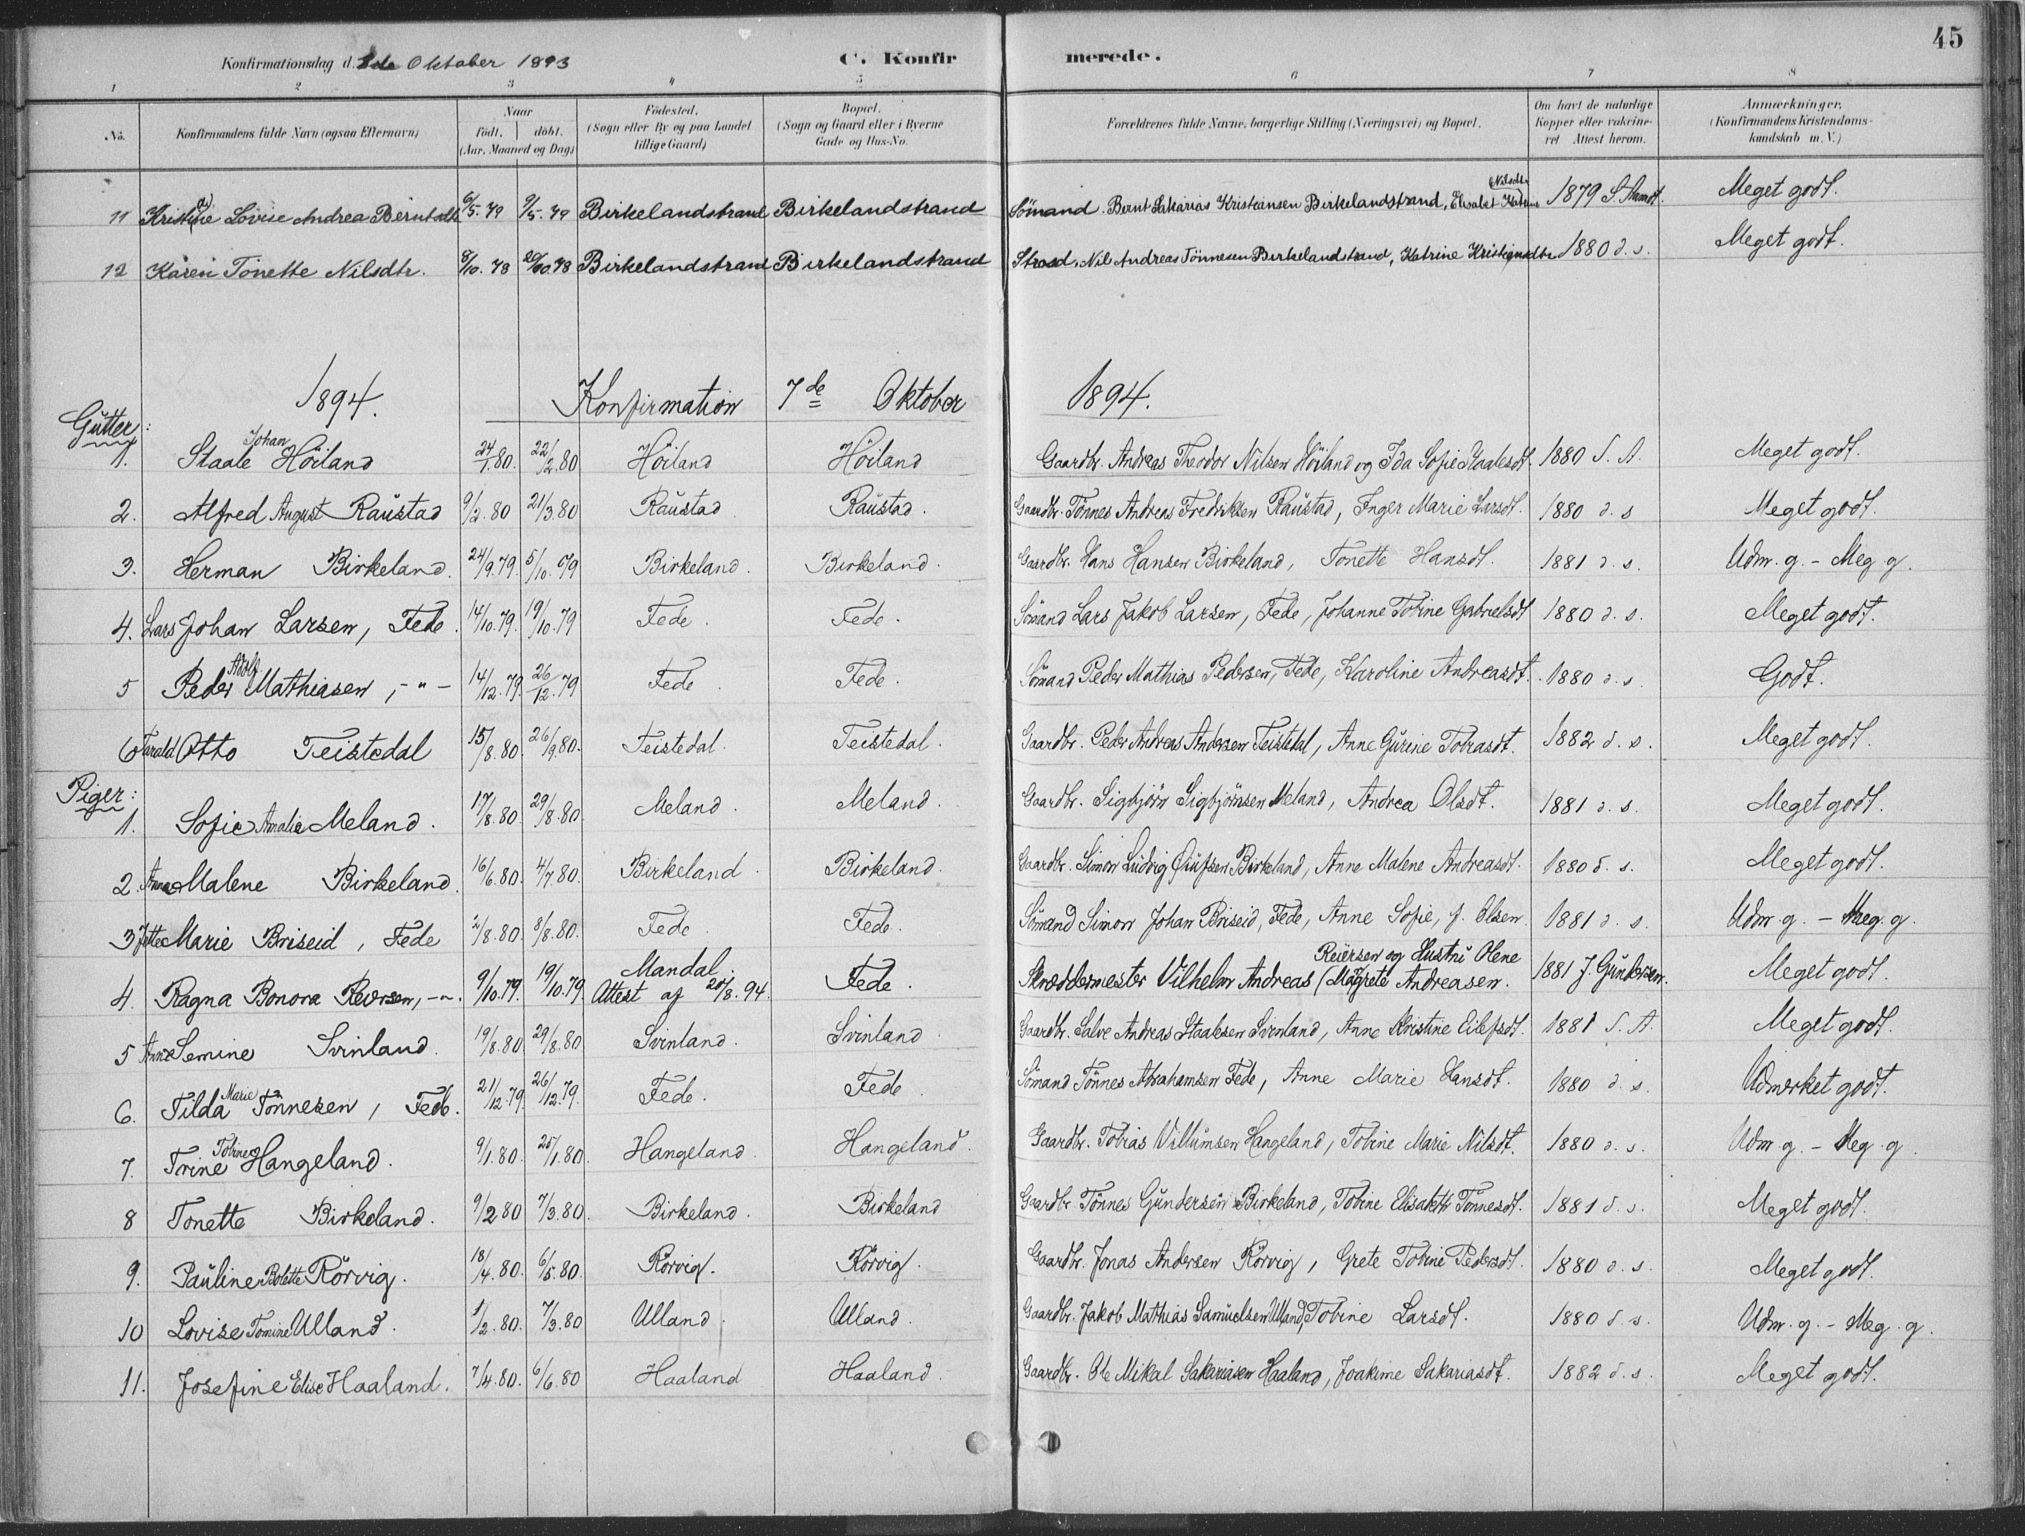 45
Konfirmationsdag d. 1ste Oktober 1893 C. Konfirmerede.
1 2 3 4 5 6 7 8
No. Konfirmandens fulde Navn (ogsaa Efternavn) Naar født, døbt. (Aar, Maaned og Dag) Fødested. (Sogn eller By og paa Landet tillige Gaard) Bopæl. (Sogn og Gaard eller i Byerne Gade og Hus-No. Forældrenes fulde Navne, borgerlige Stilling (Næringsvei) og Bopæl. Om havt de naturlige Kopper eller vakcineret Attest herom. Anmærkninger. (Konfirmandens Kristendomskundskab m. V.)
11 Kristine Lovise Andrea Berntsdtr. 6/5.79 9/5.79 Birkelandstrand Birkelandstrand Sømand Bernt Sakarias Kristiansen Birkelandstrand, Elisabet Katrine Nilsdt. 1879 Meget godt.
12 Karen Tonette Nilsdtr. 8/10.78 20/10.78 Birkelandstrand Birkelandstrand Nil Andreas Tønnesen Birkelandstrand, Katrine Kristiansdtr 1880 d. s. Meget godt.
1894. Konfirmation 7de Oktober 1894.
Gutter:
1. Staale Johan Höiland 24/1.80. 22/2.80 Höiland Höiland Gaardbr. Andreas Theodor Nilsen Höiland og Ida Sofie Staalesdt. 1880 S. A. Meget godt.
2. Alfred August Raustad 9/2.80 21/3.80 Raustad Raustad. Gaardbr. Tönnes Andreas Fredriksen Raustad, Inger Marie Larsdt. 1880 d. s Meget godt.
3. Herman Birkeland. 24/9.79. 5/10.79 Birkeland. Birkeland. Gaardbr. Hans Hansen Birkeland, Tonette Hansdt. 1881 d. s. Udm. g. - Meg. g.
4. Lars Johan Larsen, Fede. 14/10.79. 19/10.79 Fede. Fede. Sömand Lars Jakob Larsen, Fede, Johanne Tobine Gabrielsdt 1880 d. s. Meget godt.
5 Peder Adolf Mathiasen, - " - 14/12.79. 26/12.79 Fede. Fede. Sömand Peder Mathias Pedersen, Fede, Karoline Andreasdt. 1880 d. s Godt.
6 Tarald Otto Feistedal 15/8.80. 26/9.80. Feistedal. Feistedal. Gaardbr. Peder Andreas Andersen Feistedal, Anne Gurine Tobiasdt. 1882 d. s. Meget godt.
Piger:
1. Sofie Amalie Meland. 17/8.80. 29/8.80. Meland. Meland. Gaardbr. Sigbjörn Sigbjörnsen Meland, Andrea Olsdt. 1881 d. s. Meget godt.
2. Anne Malene Birkeland. 16/6.80. 4/7.80. Birkeland. Birkeland. Gaardbr. Simon Ludvig Olufsen Birkeland, Anne Malene Andreasdt. 1880 d. s. Meget godt.
3 Jette Marie Briseid, Fede 2/8.80. 8/8.80. Fede. Fede. Sömand Simon Johan Briseid, Fede, Anne Sofie, f. Olsen 1881 d. s. Udm. g. - Meg. g.
4. Ragna Bonora Reiersen, -"- 9/10.79. 19/10.79. Mandal. Attest af 20/8.94. Fede. Skræddermester Vilhelm Andreas Reiersen og Hustru Olene (Magrete Andreasen. 1881 J. Gundersen. Meget godt.
5 Anne Semine Svinland. 19/8.80. 29/8.80. Svinland. Svinland. Gaardbr. Salve Andreas Staalesen Svinland, Anne Kristine Eilefsdt. 1881 S. A. Meget godt.
6. Tilda Marie Tönnesen, Fede. 21/12.79. 26/12.79. Fede. Fede. Sömand Tönnes Abrahamsen Fede, Anne Marie Hansdt. 1880 d. s. Udmerket godt.
7. Trine Tobine Hangeland. 9/1.80. 25/1.80. Hangeland. Hangeland. Gaardbr. Tobias Villumsen Hangeland, Tobine Marie Nilsdt. 1880 d. s. Udm. g. - Meg. g
8 Tonette Birkeland. 9/2.80 7/3.80. Birkeland. Birkeland Gaardbr. Tönnes Gundersen Birkeland, Tobine Elisabeth Tönnesdt. 1881 d. s. Meget godt.
9. Pauline Bolette Rörvig. 18/4.80. 6/5.80. Rörvig. Rörvig. Gaardbr. Jonas Andersen Rörvig, Grete Tobine Pedersdt. 1880 d. s. Meget godt.
10 Lovise Tomine Ulland. 1/2.80. 7/3.80 Ulland. Ulland. Gaardbr. Jakob Mathias Samuelsen Ulland, Tobine Larsdt. 1880 d. s. Udm. g. - Meg. g.
11. Josefine Elise Haaland. 7/4.80. 6/6.80 Haaland Haaland. Gaardbr. Ole Mikal Sakariasen Haaland, Joakime Sakariasdt. 1882 d. s. Meget godt.